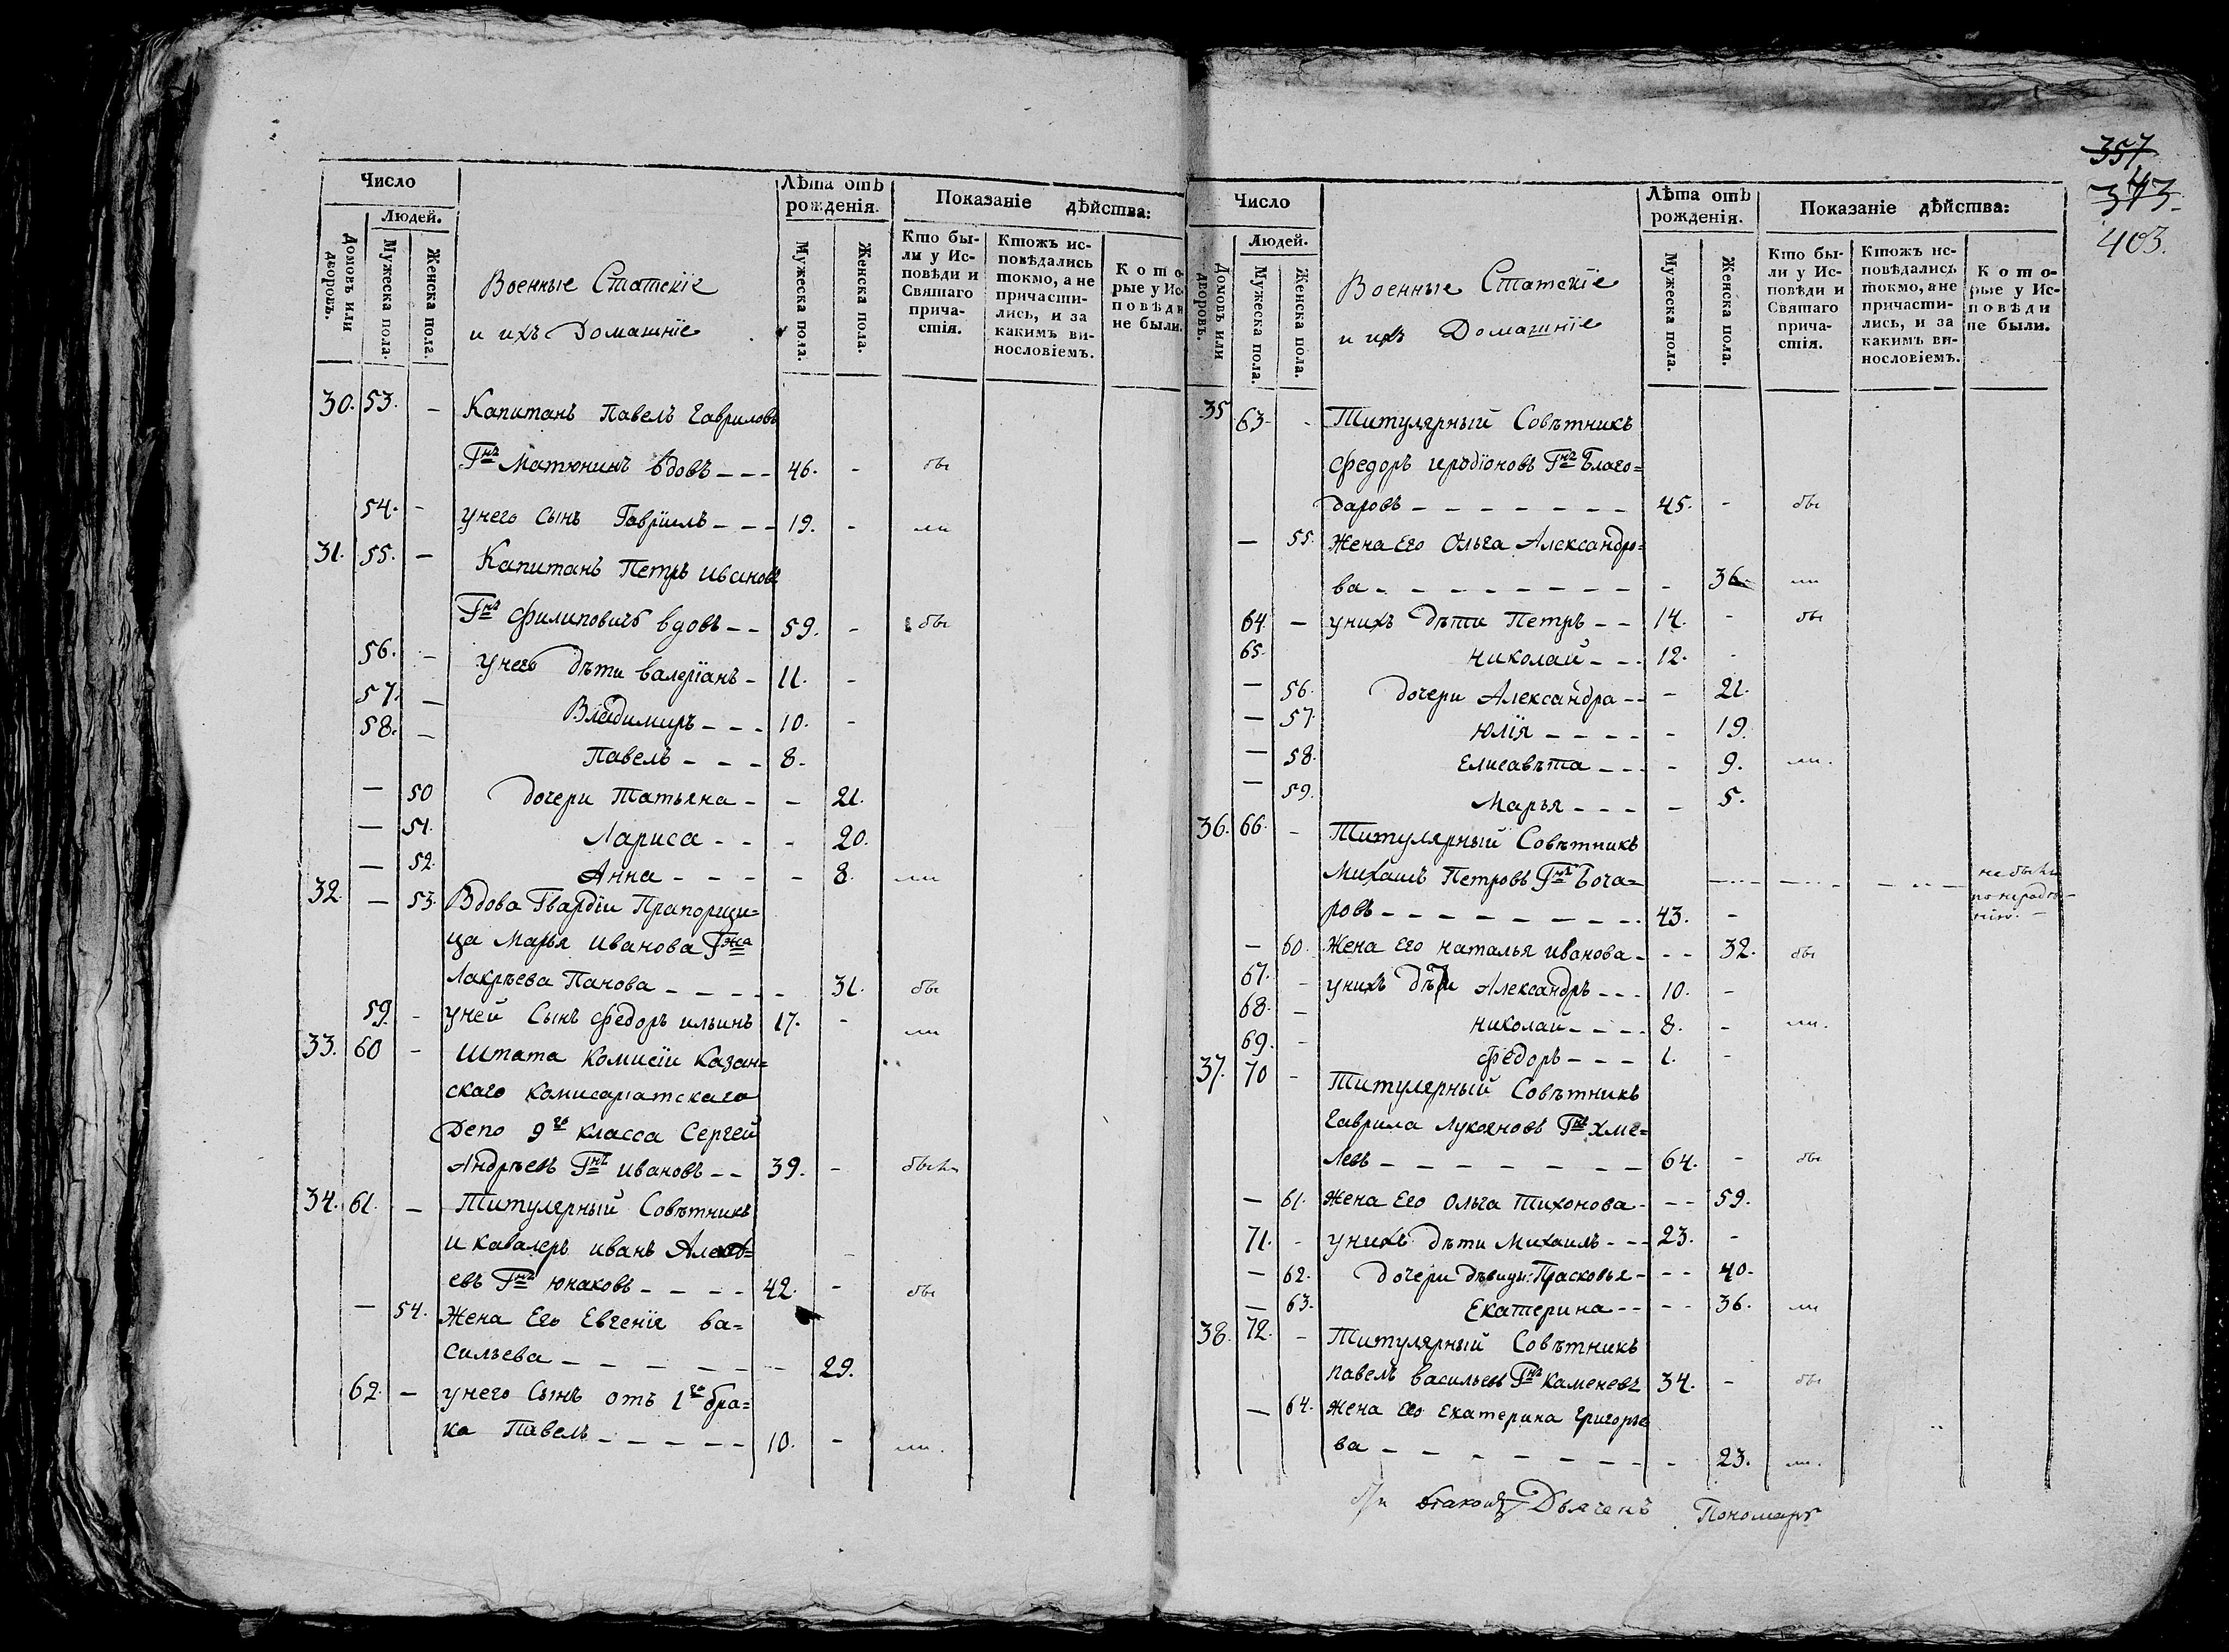 Число
Людей.
Домовъ или дворовъ.
Мужеска пола.
Женска пола.
Военные Статскіе
и ихъ Домашніе
Лѣта отъ рожденія.
Мужеска пола.
Женска пола.
Показаніе дѣйства:
Кто бы-
ли у Ис-
повѣди и
Святаго
прича-
стія.
Ктожъ ис-
повѣдались
токмо, а не
причасти-
лись, и за
какимъ ви-
нословіемъ.
Кото-
рые у Ис-
повѣди
не были.
30. 53. - Капитанъ Павелъ Гавриловъ
Гнъ Матюнинъ вдовъ - - - 46. - бы
54. - у него сынъ Гавріилъ - - - 19. - ли
31. 55. - Капитанъ Петръ Ивановъ
Гнъ Филиповичъ вдовъ - - 59. - бы
56. - у него дѣти Валеріанъ - 11. -
57. - Владимиръ - - - 10. -
58. - Павелъ - - - 8.
- 50 дочери Татьяна - - 21.
- 51. Лариса - - - 20.
- 52. Анна - - - - - 8. ли
32. - 53. Вдова Гвардіи Прапорщи=
ца Марья Иванова Гжа
Панова - - - - - 31. бы
59. - у ней Сынъ Федоръ Ильинъ 17. - ли
33. 60 - Штата Комисіи Казан=
скаго Комисаріатскаго
Депо 9го класса Сергей
Андрѣевъ Гнъ Ивановъ - - 39. - былъ
34. 61. - Титулярный Совѣтникъ
и Кавалеръ Иванъ
евъ Гнъ Юнаковъ - - - - 42. - бы
- 54. Жена Его Евгенія Ва=
сильева - - - - - - - 29.
62. - у него Сынъ отъ 1го бра=
ка Павелъ - - - - - 10. - ли.
357
343.
403.
Число
Людей.
Домовъ или дворовъ.
Мужеска пола.
Женска пола.
Военные Статскіе
и ихъ Домашніе
Лѣта отъ рожденія.
Мужеска пола.
Женска пола.
Показаніе дѣйства:
Кто бы-
ли у Ис-
повѣди и
Святаго
прича-
стія.
Ктожъ ис-
повѣдались
токмо, а не
причасти-
лись, и за
какимъ ви-
нословіемъ.
Кото-
рые у Ис-
повѣди
не были.
35 63. - Титулярный Совѣтникъ
Федоръ Иродіоновъ Гнъ Благо=
даровъ - - - - - - - 45. - бы
- 55. Жена Его Ольга Александро=
ва - - - - - - - - - 36. ли
64. - у нихъ дѣти Петръ - - 14. - бы
65. Николай - - - 12. -
- 56. дочери Александра - - - 21.
- 57. Юлія - - - - - 19.
- 58. Елисавѣта - - - - 9. ли.
- 59. Марья - - - - 5.
36. 66. - Титулярный Совѣтникъ
Михаилъ Петровъ Гнъ Боча=
ровъ - - - - - - - - - 43. - не былъ
- 60. Жена Его Наталья Иванова - - - 32. бы
67. - у нихъ дѣти Александръ - - - 10. -
68. - Николай - - - - 8. - ли.
69. - Федоръ - - - 1. -
37. 70 - Титулярный Совѣтникъ
Гаврила Лукояновъ Гнъ Хме=
левъ - - - - - - - 64. - бы
- 61. Жена Его Ольга Тихонова - - - 59.
71. - у нихъ дѣти Михаилъ - - - 23. -
- 62. дочери дѣвицы: Прасковья - - - 40.
- 63. Екатерина - - - - 36. ли
38. 72. - Титулярный Совѣтникъ
Павелъ Васильевъ Гнъ Каменевъ 34. - бы
- 64. Жена Его Екатерина Григорье
ва - - - - - - - - 23. ли.
Дьячекъ Пономарь